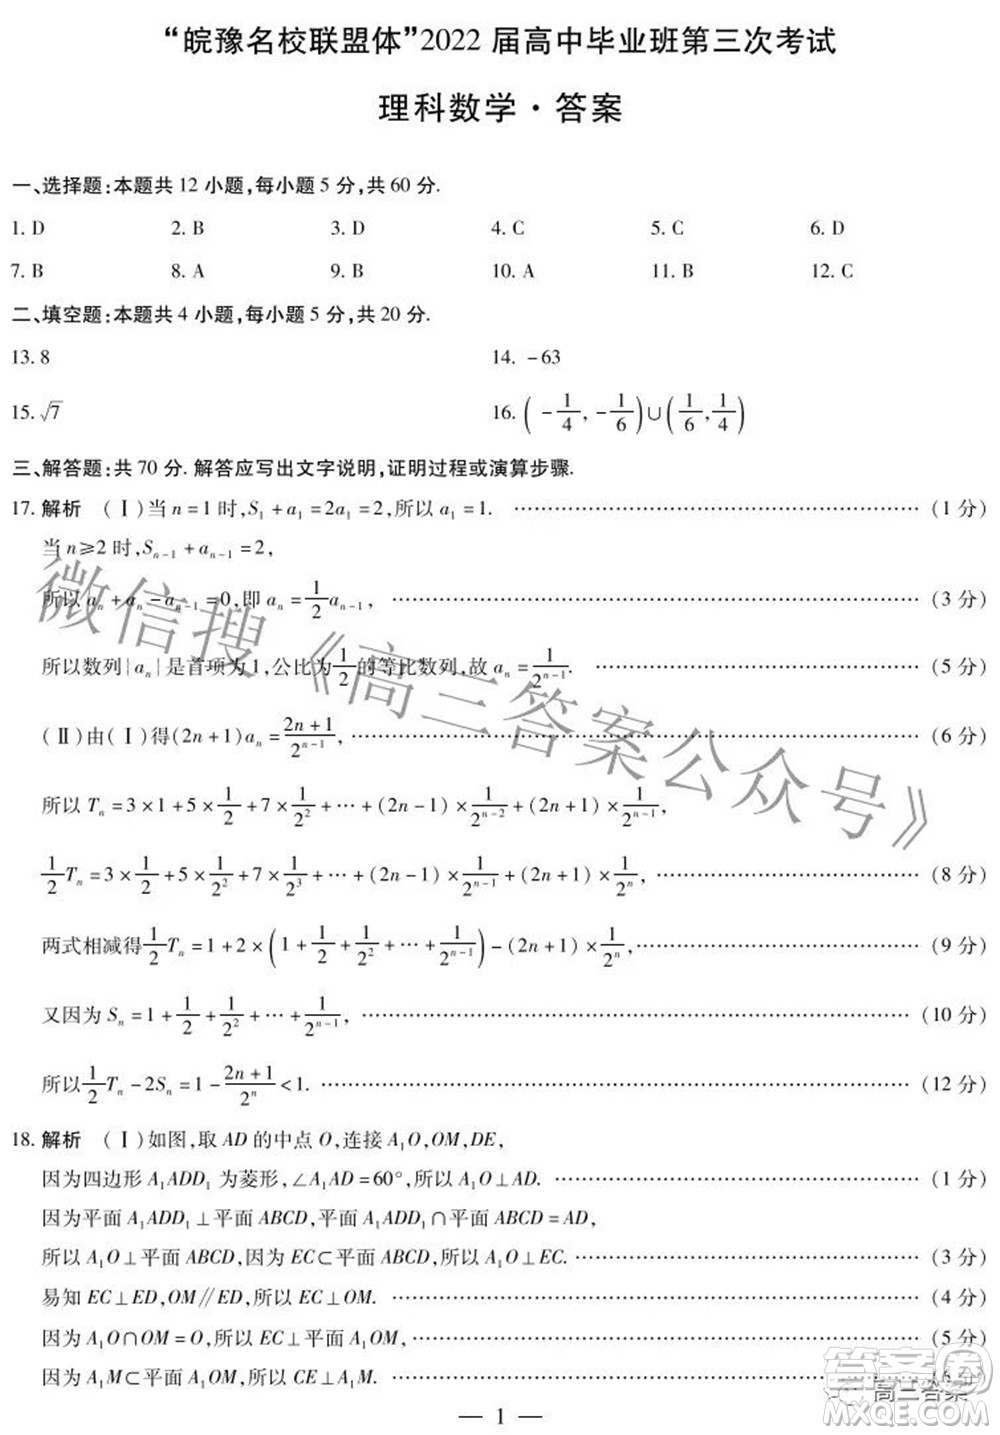 “皖豫名校联盟体”2022 届高中毕业班第三次考试
理科数学·答案
一、选择题:本题共 12 小题,每小题 5 分,共 60 分.
1. D 2. B 3. D 4. C 5. C 6. D
7. B 8. A 9. B 10. A 11. B 12. C
二、填空题:本题共 4 小题,每小题 5 分,共 20 分.
13. 8 14. -63
15. √7 16. (-1/4, -1/6)∪(1/6, 1/4)
三、解答题:共 70 分. 解答应写出文字说明,证明过程或演算步骤.
17. 解析 (Ⅰ)当 n=1 时,S₁+a₁=2a₁=2,所以 a₁=1. ………… (1 分)
当 n≥2 时,Sₙ₋₁+aₙ₋₁=2,
所以 aₙ+aₙ-aₙ₋₁=0,即 aₙ=1/2 aₙ₋₁, ………… (3 分)
所以数列{aₙ}是首项为 1,公比为 1/2 的等比数列,故 aₙ=1/2ⁿ⁻¹. ………… (5 分)
(Ⅱ)由(Ⅰ)得(2n+1)aₙ=(2n+1)/2ⁿ⁻¹, ………… (6 分)
所以 Tₙ=3×1+5×1/2+7×1/2²+…+(2n-1)×1/2ⁿ⁻²+(2n+1)×1/2ⁿ⁻¹,
1/2 Tₙ=3×1/2+5×1/2²+7×1/2³+…+(2n-1)×1/2ⁿ⁻¹+(2n+1)×1/2ⁿ, ………… (8 分)
两式相减得 1/2 Tₙ=1+2×(1+1/2+1/2²+…+1/2ⁿ⁻¹)-(2n+1)×1/2ⁿ, ………… (9 分)
又因为 Sₙ=1+1/2+1/2²+…+1/2ⁿ⁻¹, ………… (10 分)
所以 1/2 Tₙ-2Sₙ=1-(2n+1)/2ⁿ<1. ………… (12 分)
18. 解析 (Ⅰ)如图,取 AD 的中点 O,连接 A₁O,OM,DE,
因为四边形 A₁ADD₁ 为菱形,∠A₁AD=60°,所以 A₁O⊥AD. ………… (1 分)
因为平面 A₁ADD₁⊥平面 ABCD,平面 A₁ADD₁∩平面 ABCD=AD,
所以 A₁O⊥平面 ABCD,因为 EC⊂平面 ABCD,所以 A₁O⊥EC. ………… (3 分)
易知 EC⊥ED,OM∥ED,所以 EC⊥OM. ………… (4 分)
因为 A₁O∩OM=O,所以 EC⊥平面 A₁OM, ………… (5 分)
因为 A₁M⊂平面 A₁OM,所以 CE⊥A₁M. …………
— 1 —
微信搜《高三答案公众号》
高三答案
答案圈
MXQE.COM